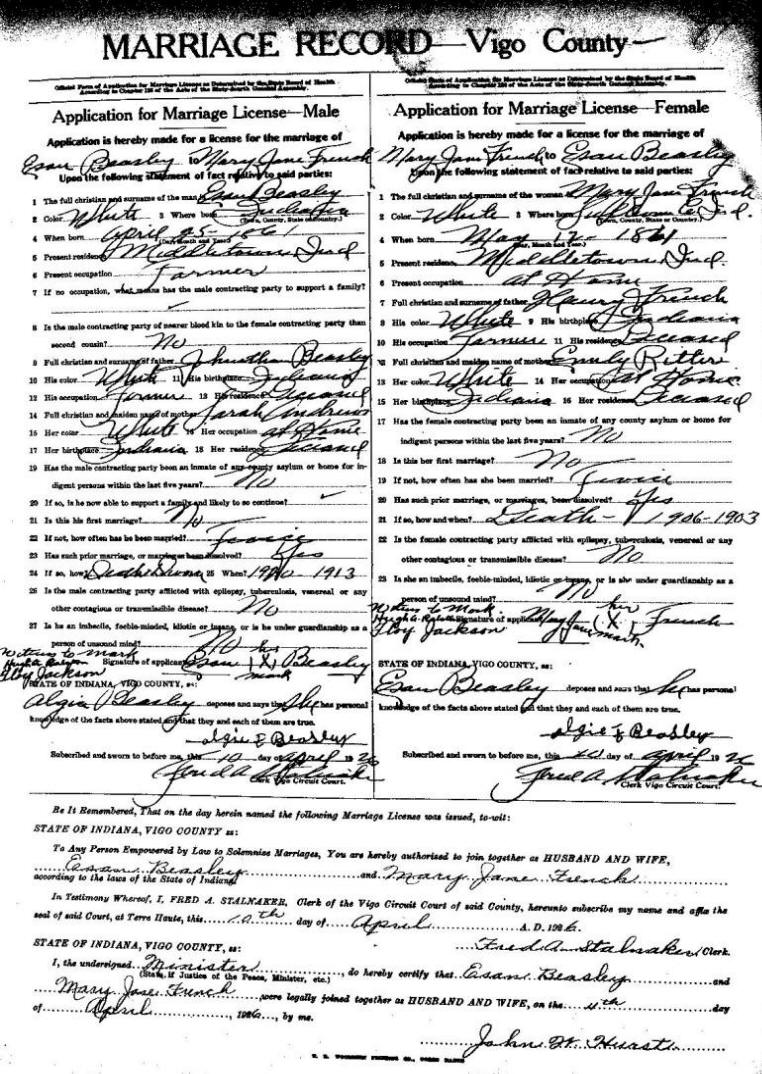 MARRIAGE RECORD—Vigo County—
Official Form of Application for Marriage License as Determined by the State Board of Health
According to Chapter 126 of the Acts of the Sixty-fourth General Assembly.
Application for Marriage License—Male
Application is hereby made for a license for the marriage of
Esau Beasley to Mary Jane French
Upon the following statement of fact relative to said parties:
1 The full christian and surname of the man Esau Beasley
2 Color White 3 Where born Indiana
(Town, County, State or Country.)
4 When born April 25-1861
(Day, Month and Year.)
5 Present residence Middletown Ind
6 Present occupation Farmer
7 If no occupation, what means has the male contracting party to support a family?
8 Is the male contracting party of nearer blood kin to the female contracting party than
second cousin? No
9 Full christian and surname of father Johnathan Beasley
10 His color White 11 His birthplace Indiana
12 His occupation Farmer 13 His residence Deceased
14 Full christian and maiden name of mother Sarah Andrews
15 Her color White 16 Her occupation at Home
17 Her birthplace Indiana 18 Her residence Deceased
19 Has the male contracting party been an inmate of any county asylum or home for in-
digent persons within the last five years? No
20 If so, is he now able to support a family and likely to so continue? ✓
21 Is this his first marriage? No
22 If not, how often has he been married? Twice
23 Has such prior marriage, or marriages been dissolved? Yes
24 If so, how 25 When? 1913
26 Is the male contracting party afflicted with epilepsy, tuberculosis, venereal or any
other contagious or transmissible disease? No
27 Is he an imbecile, feeble-minded, idiotic or insane, or is he under guardianship as a
person of unsound mind? No his
Witness to mark
Signature of applicant Esau (X) Beasley
Floy Jackson mark
STATE OF INDIANA, VIGO COUNTY, ss:
Algie Beasley deposes and says that she has personal
knowledge of the facts above stated and that they and each of them are true.
Algie F Beasley
Subscribed and sworn to before me, this 10 day of April 1926
Fred A Stalnaker
Clerk Vigo Circuit Court.
Official Form of Application for Marriage License as Determined by the State Board of Health
According to Chapter 126 of the Acts of the Sixty-fourth General Assembly.
Application for Marriage License—Female
Application is hereby made for a license for the marriage of
Mary Jane French to Esau Beasley
Upon the following statement of fact relative to said parties:
1 The full christian and surname of the woman Mary Jane French
2 Color White 3 Where born Ind.
(Town, County, State or Country.)
4 When born May 12-1861
(Day, Month and Year.)
5 Present residence Middletown Ind.
6 Present occupation at Home
7 Full christian and surname of father Henry French
8 His color White 9 His birthplace Indiana
10 His occupation Farmer 11 His residence Deceased
12 Full christian and maiden name of mother Emily Ritter
13 Her color White 14 Her occupation at Home
15 Her birthplace Indiana 16 Her residence Deceased
17 Has the female contracting party been an inmate of any county asylum or home for
indigent persons within the last five years? No
18 Is this her first marriage? No
19 If not, how often has she been married? Twice
20 Has such prior marriage, or marriages, been dissolved? Yes
21 If so, how and when? Death- 1906-1903
22 Is the female contracting party afflicted with epilepsy, tuberculosis, venereal or any
other contagious or transmissible disease? No
23 Is she an imbecile, feeble-minded, idiotic or insane, or is she under guardianship as a
person of unsound mind? No
Witness to Mark her
Signature of applicant Mary Jane (X) French
Floy Jackson mark
STATE OF INDIANA, VIGO COUNTY, ss:
Esau Beasley deposes and says that he has personal
knowledge of the facts above stated and that they and each of them are true.
Algie F Beasley
Subscribed and sworn to before me, this 10 day of April 1926
Fred A Stalnaker
Clerk Vigo Circuit Court.
Be It Remembered, That on the day herein named the following Marriage License was issued, to-wit:
STATE OF INDIANA, VIGO COUNTY ss:
To Any Person Empowered by Law to Solemnize Marriages, You are hereby authorized to join together as HUSBAND AND WIFE,
Esau Beasley and Mary Jane French
according to the laws of the State of Indiana.
In Testimony Whereof, I, FRED A. STALNAKER, Clerk of the Vigo Circuit Court of said County, hereunto subscribe my name and affix the
seal of said Court, at Terre Haute, this 10th day of April A. D. 1926.
Fred A Stalnaker Clerk.
STATE OF INDIANA, VIGO COUNTY, ss:
I, the undersigned Minister, do hereby certify that Esau Beasley and
(State, if Justice of the Peace, Minister, etc.)
Mary Jane French were legally joined together as HUSBAND AND WIFE, on the 11th day
of April, 1926, by me.
John W. Hurst